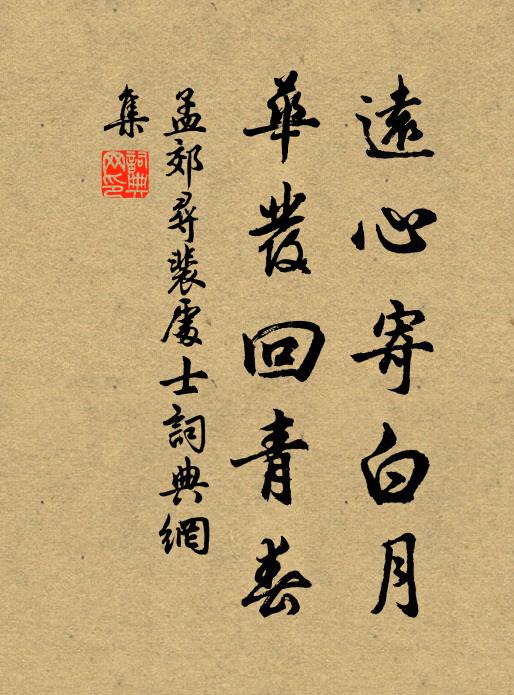 遠心寄白月
華發回青春
孟郊尋裴處士詞典網
集
詞典
网印